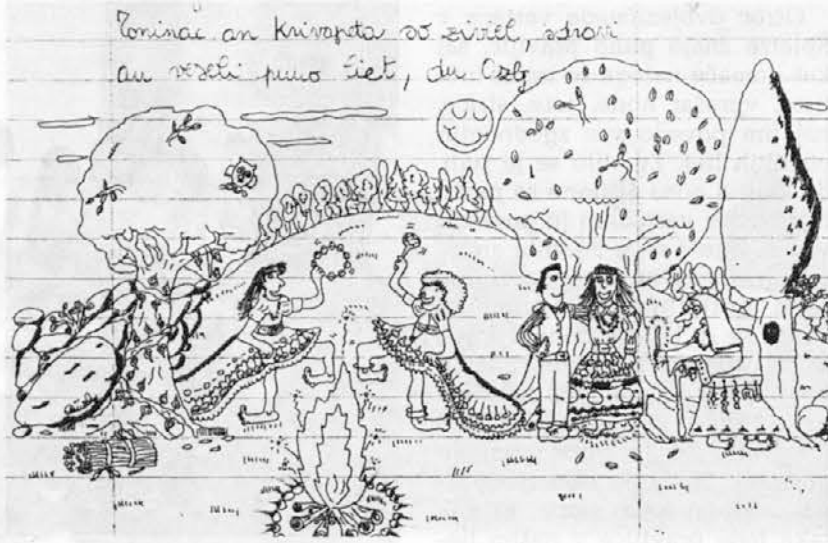 Toninac an Krivapeta so živel, zdravi
an veseli puno liet, du